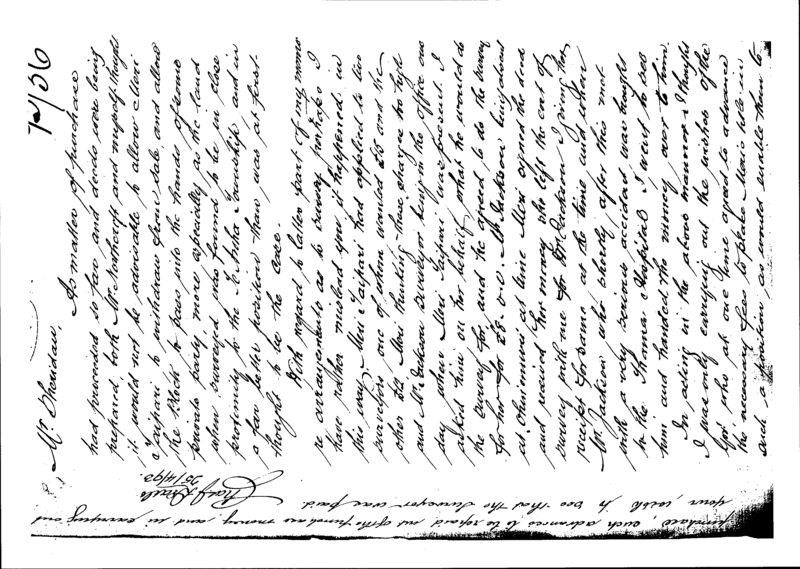 Mr. Sheridan,
As matter of purchase
had proceeded so far and deeds were being
prepared, both Mr. Northcroft and myself thought
it would not be advisable to allow Meri
Taipari to withdraw from sale and allow
the Block to pass into the hands of some
private party, more especially as the land
when surveyed was found to be in close
proximity to the Te Aroha Township and in
a far better position than was at first
thought to be the case.
With regard to latter part of my memo
re arrangements as to survey, perhaps I
have rather mislead you, it happened in
this way. Meri Taipari had applied to two
surveyors one of whom wanted £5 and the
other £2. Meri thinking these charges too high
and Mr. Jackson Surveyor being in the office one
day when Meri Taipari was present I
asked him on her behalf what he would do
the survey for, and he agreed to do the survey
for her for £5.0.0. Mr. Jackson being absent
at Ohinemuri at time Meri signed the deed
and received her money, she left the cost of
survey with me for Mr. Jackson, I giving her
receipt for same at the time and when
Mr. Jackson who shortly after this met
with a very serious accident was brought
to the Thames Hospital I went to see
him and handed the money over to him.
In acting in the above manner I thought
I was only carrying out the wishes of the
Govt. who at one time agreed to advance
the necessary fees to place Maori sellers in
such a position as would enable them to
purchase, such advances to be repaid out of the purchase money, and in carrying out
your wish to see that the Surveyor was paid.
25/4/93